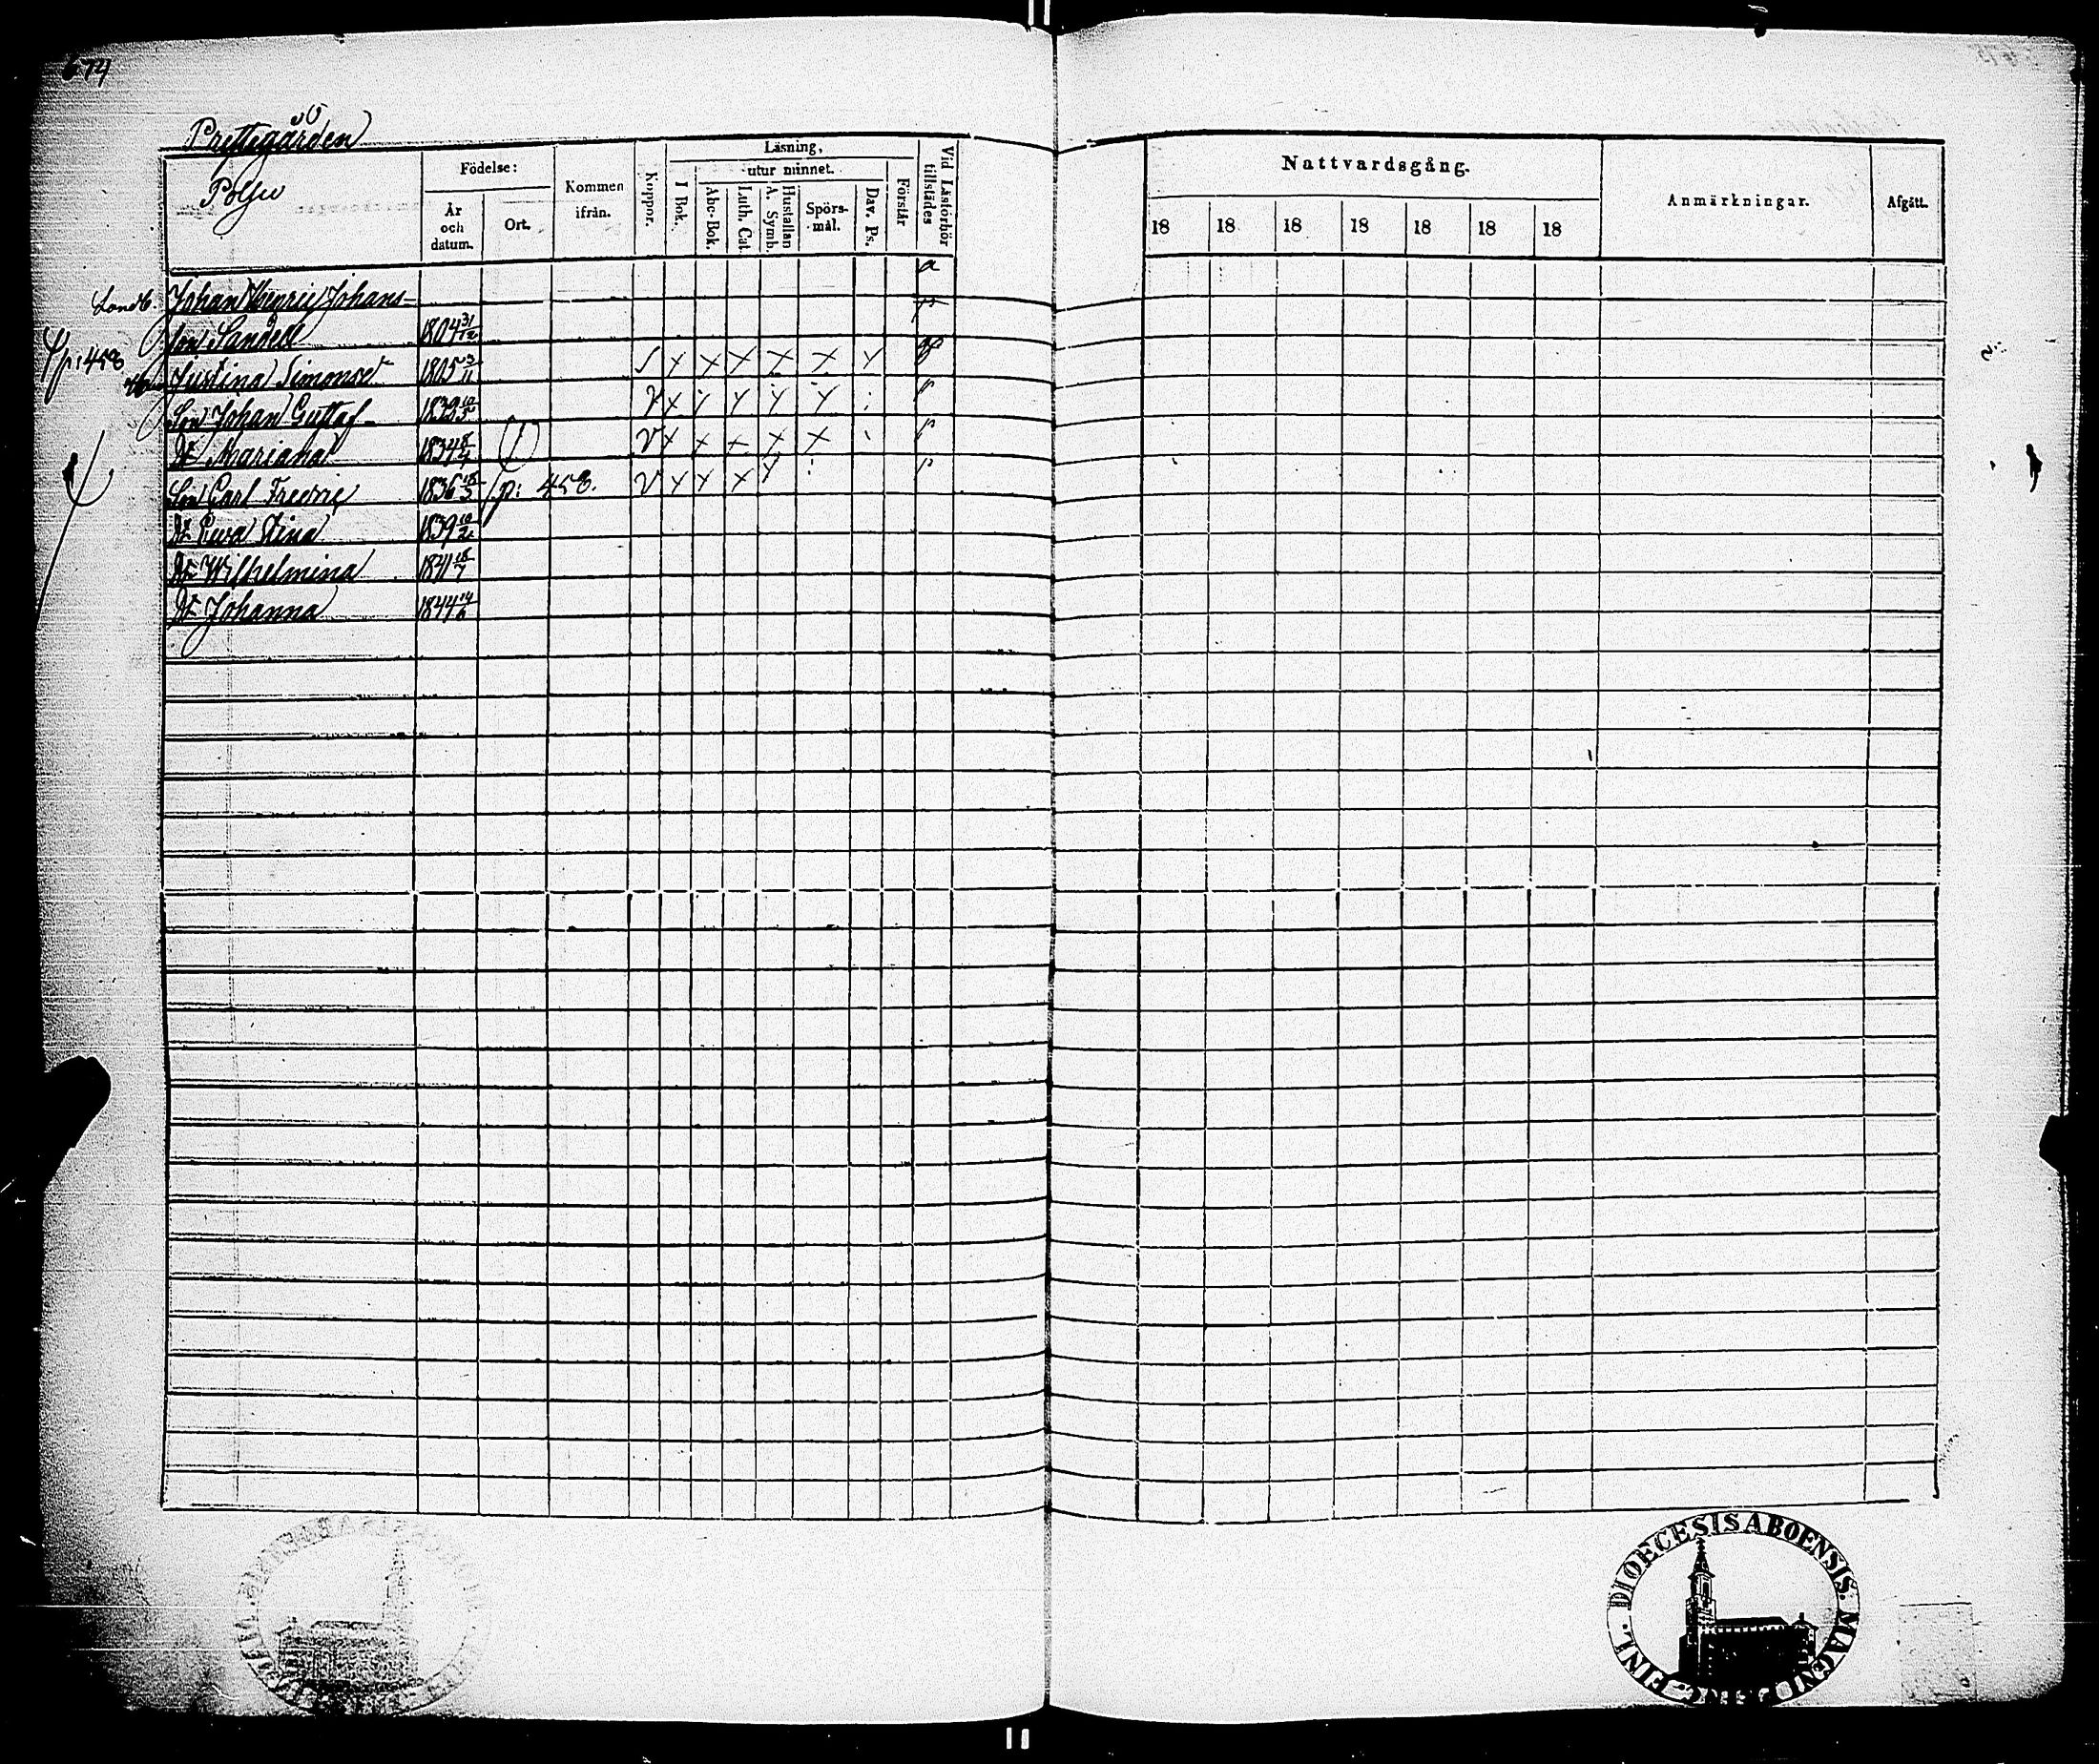 674
Prestegården
Polsu
Födelse:
År och datum.
Ort.
Kommen ifrån.
Koppor.
Läsning,
I Bok.
utur minnet.
Abc-Bok.
Luth. Cat.
Hustaflan A. Symb.
Spörs-mål.
Dav. Ps.
Förstår
Vid Läsförhör tillstädes
Nattvardsgång.
18 18 18 18 18 18 18
Anmärkningar.
Afgått.
a
Landb. Johan Henric Johans-
son Sandell 1804 31/12
p: 458 Justina Simonsd 1805 3/11 S x x x x x x
Son Johan Gustaf 1832 10/5 V x
Dr Mariana 1834 8/4 V x x x x x
Son Carl Fredric 1836 18/3 p: 458. V x x x
Dr Ewa Stina 1839 10/2
Dr Wilhelmina 1841 18/7
Dr Johanna 1844 14/6
FINL. DIOECESIS ABOENSIS. MAGNI